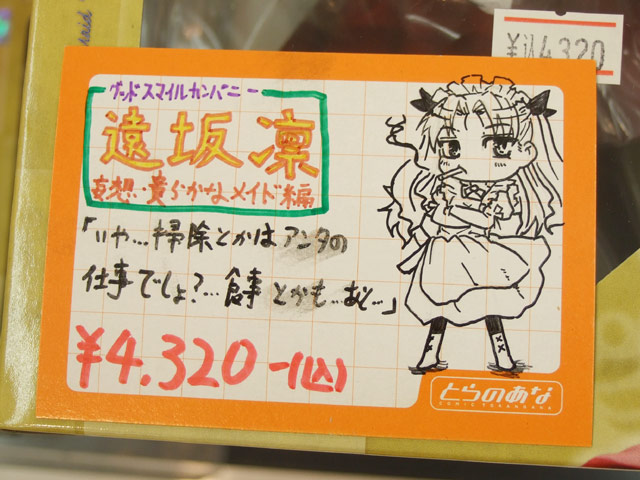 ¥込4320
グッドスマイルカンパニー
遠坂 凛
妄想・貴らかなメイド編
「いや…掃除とかはアンタの
仕事でしょ?…食事とかも…あと…」
¥4.320-(込)
とらのあな
COMIC TORANOANA